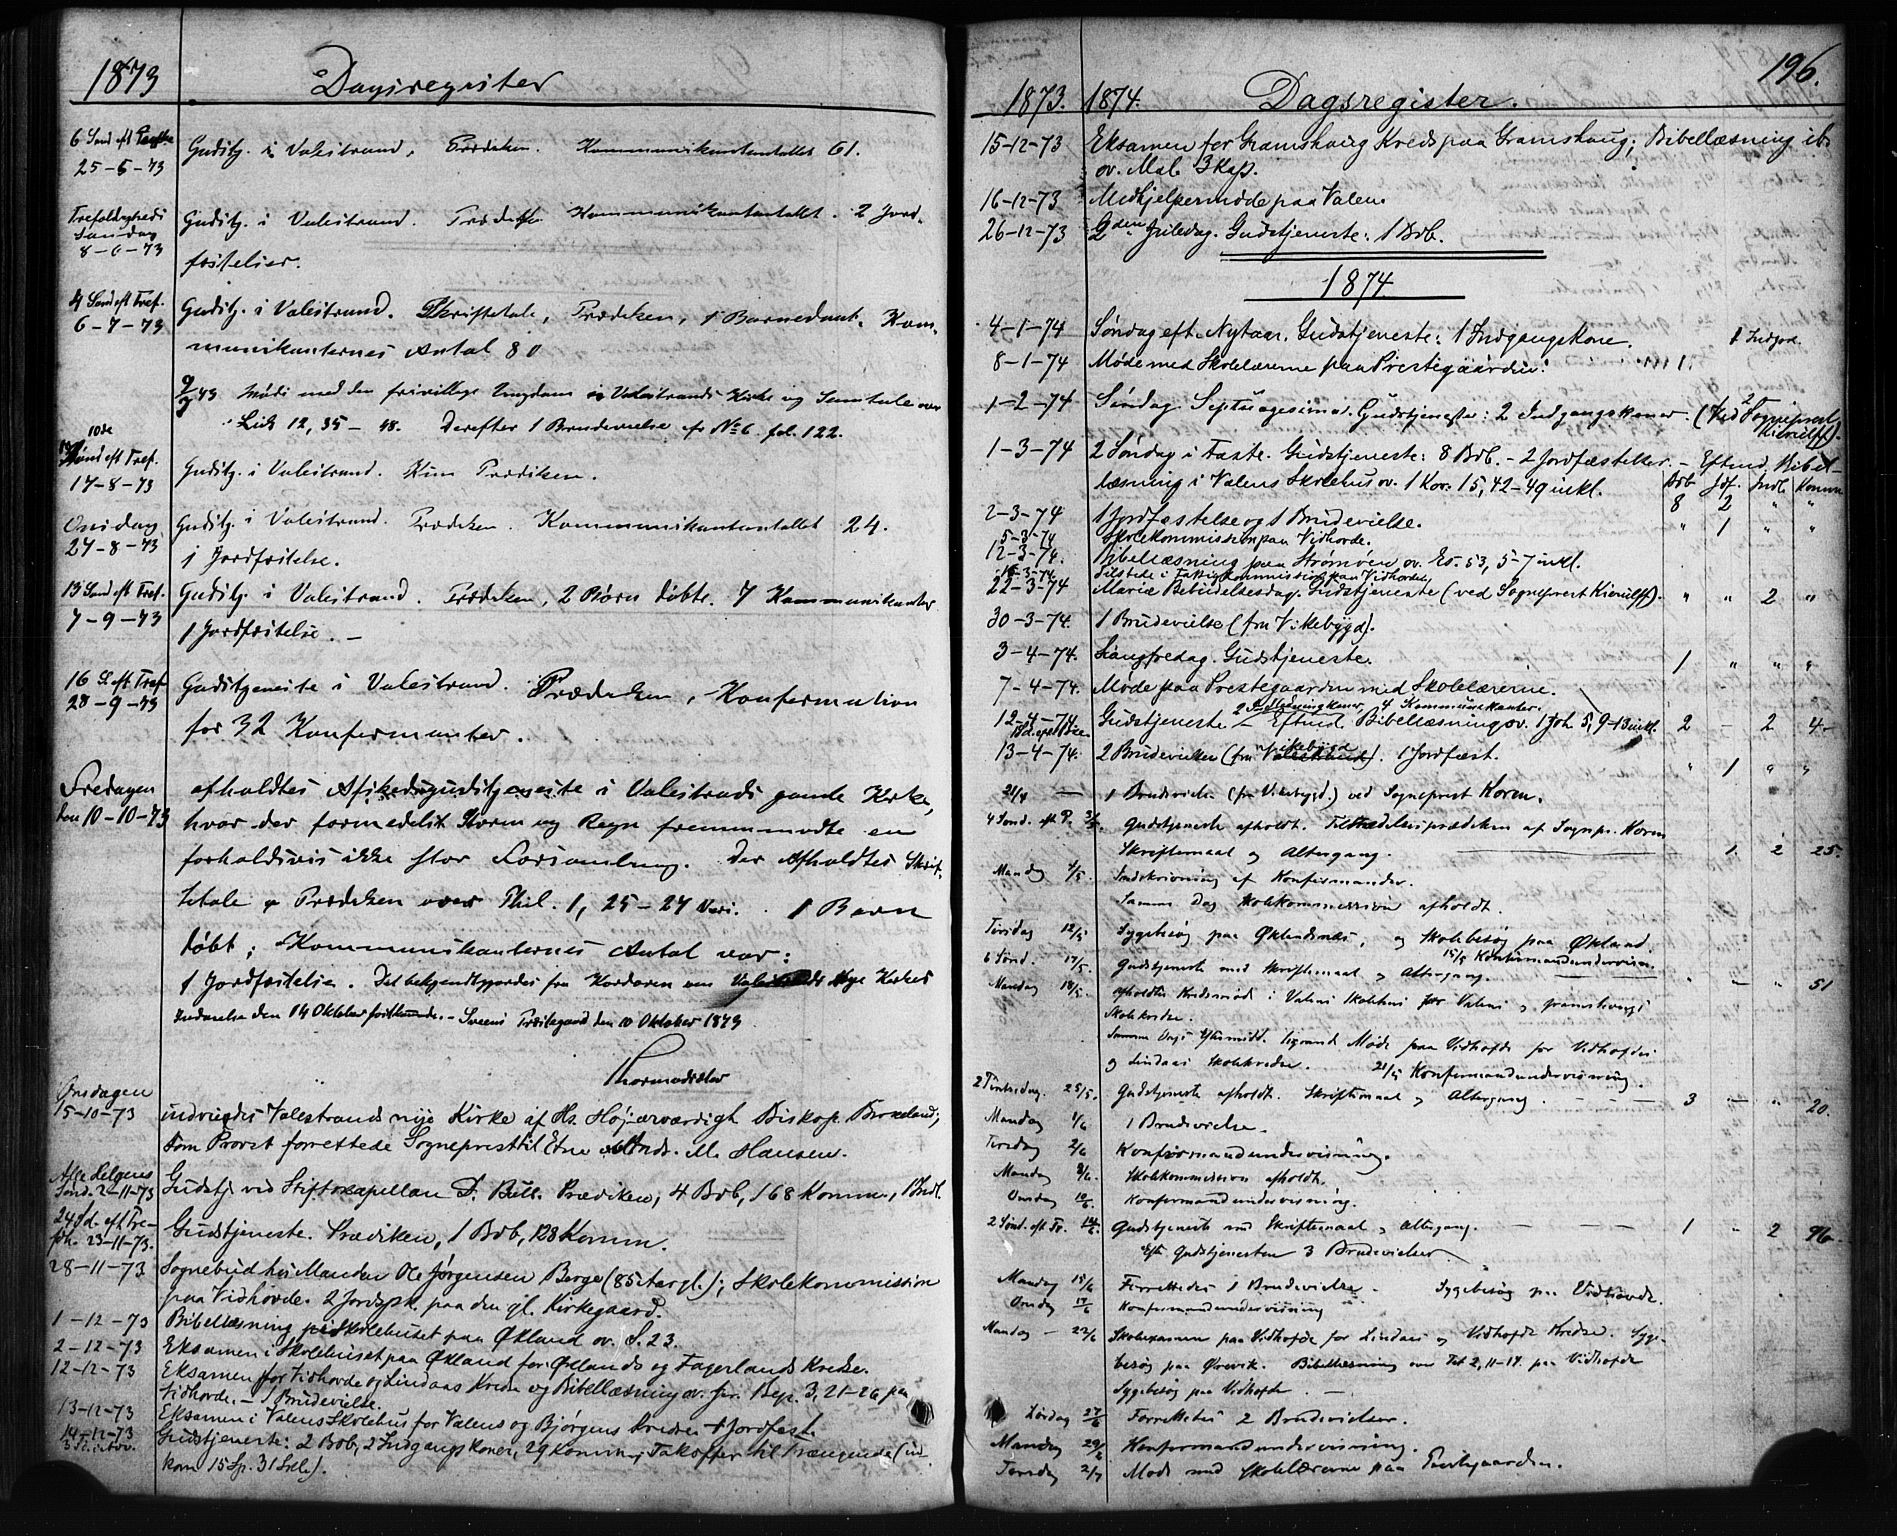 1873 Dagsregister
6 Sønd eft
25-5-73 Gudstj. i Valestrand. Prædiken. Kommunikantantallet 61.
Trefoldigheds
Søndag
8-6-73 Gudstj. i Valestrand. Prædiken. Kommunikantantallet. 2 Jord-
fæstelser.
4 Sønd eft Tref.
6-7-73 Gudstj. i Valestrand. Skriftetale, Prædiken, 1 Barnedaab. Kom-
munikanternes Antal 80
Møde med den frivillige Ungdom i Valestrands Kirke og Samtale over
Luk 12, 35-48. Derefter 1 Brudevielse cfr No 6 fol. 122.
10de
Sønd eft Tref.
17-8-73 Gudstj. i Valestrand. Kun Prædiken.
Onsdag
27-8-73 Gudstj. i Valestrand. Prædiken Kommunikantantallet 24.
1 Jordfæstelse.
13 Sønd eft Tref.
7-9-73 Gudstj. i Valestrand. Prædiken, 2 Børn døbte. 7 Kommunikanter
1 Jordfæstelse. -
16 S. eft Tref
28-9-73 Gudstjeneste i Valestrand. Prædiken, Konfirmation
for 32 Konfirmanter.
Fredagen
den 10-10-73 afholdtes Afskedsgudstjeneste i Valestrands gamle Kirke,
hvor der formedelst Storm og Regn fremmødte en
forholdsvis ikke stor Forsamling. Der Afholdtes Skrif-
tetale & Prædiken over Phil. 1, 25-27 . 1 Barn
døbt; Kommunikanternes Antal var:
1 Jordfæstelse. Det bekjendtgjordes fra Kordøren om Valestrands nye Kirkes
Indvielse den 14 Oktober førstkommende. - Sveens Præstegaard den 10 Oktober 1873
Thormodsæter
Onsdagen
15-10-73 indviedes Valestrands nye Kirke af Hs. Højærværdigh Biskop Birkeland;
som Provst forrettede Sognepresttil Etne Ands. M. Hansen.
Alle Helgens
Sønd. 2-11-73 Gudstj. ved Stiftskapellan D. Bull. Prædiken, 4 Bdb, 168 Komm., 1 Indl.
24 Sd. eft Tre-
fdh. 23-11-73. Gudstjeneste. Prædiken, 1 Bdb, 128 Komm.
28-11-73 Sognebud hos Manden Ole Jørgensen Berge (85 Aar gl.); Skolekommission
paa Vidhovde. 2 Jordspk. paa den gl. Kirkegaard.
1-12-73 Bibellæsning i Skolehuset paa Økland ov. S. 23.
2-12-73 Eksamen i Skolehuset paa Økland for Øklands og Fagerlands Kredse.
12-12-73 Eksamen for Vidhovde og Lindaas Kredse og Bibellæsning ov. 3, 21-26 paa
Vidhovde. - 1 Brudevielse.
13-12-73 Eksamen i Valens Skolehus for Valens og Bjørgens Kredse + 1 Jordfæst.
14-12-73
3 S. i Adv. Gudstjeneste: 2 Bdb, 2 Indgangskoner, 29 Komm., Takoffer til Trængende (ind-
kom 15 Sp. 31 Skl.).
196.
1873. 1874. Dagsregister.
15-12-73 Eksamen for Gramshaug Kreds paa Gramshaug; Bibellæsning ib.
ov. Mal. 3 Kap.
16-12-73 Medhjelpermøde paa Valen.
26-12-73 2den Juledag. Gudstjeneste: 1 Bdb.
1874.
4-1-74 Søndag eft. Nytaar. Gudstjeneste: 1 Indgangskone. 1 Indgsk.
8-1-74 Møde med Skolelærerne paa Prestegaarden.
1-2-74 Søndag Septuagesima. Gudstjeneste: 2 Indgangskoner. (ved Sogneprest
Kierulff).
1-3-74 2 Søndag i Faste. Gudstjeneste: 8 Bdb. - 2 Jordfæstelser. - Eftmd. Bibel-
læsning i Valens Skolehus ov. 1 Kor. 15, 42-49 inkl. Bdb Jdf. Indl. Komm
8 2 " "
2-3-74 1 Jordfæstelse og 1 Brudevielse. " 1 " "
5-3-74 Skolekommission paa Vidhovde.
12-3-74. Bibellæsning paa Strømøen ov. Es. 53, 5-7 inkl.
Tilstede i Fattigkommission paa Vidhovde
22-3-74 Mariæ Bebudelsesdag. Gudstjeneste (ved Sogneprest Kierulff). " " 2 "
30-3-74. 1 Brudevielse (fra Vikebygd).
3-4-74. Langfredag. Gudstjeneste. 1 " " "
7-4-74. Møde paa Prestegaarden med Skolelærerne.
2 Indledningskoner, 4 Kommunikanter.
12-4-74 Gudstjeneste - Eftmd. Bibellæsning ov. 1 Joh. 5, 9-13 inkl. 2 - 2 4
13-4-74. 2 Brudevielser (fra Vikebygd). 1 Jordfæst. " 1 " "
21/4 - 1 Brudevielse (fra Vikebygd.) ved Sogneprest Koren.
4 Sønd. eft P. 3/5. Gudstjeneste afholdt. Tiltrædelsesprædiken af Sognpr. Koren
Skriftemaal og Altergang. 1 2 25.
Mandag 4/5 Indskrivning af Konfirmander.
Samme Dag Skolekommission afholdt.
Tirsdag 12/5 Sygebesøg paa Øklandsnæs, og Skolebesøg paa Økland.
15/5 Konfirmandundervisn.
6 Sønd. 17/5. Gudstjeneste med Skriftemaal og Altergang. " - " 51
Mandag 18/5. afholdtes Kredsmøde i Valens Skolehus for Valens og Gramshaugs
Skolekredse.
Samme Dags Eftermidd. lignende Møde paa Vidhofde for Vidhofdes
og Lindaas Skolekredse. 21/5 Konfirmandundervisning.
2 Pintsedag. 25/5. Gudstjeneste afholdt. Skriftemaal og Altergang. - - 3 - " 20.
Mandag 1/6 1 Brudevielse.
Tirsdag 2/6 Konfirmandundervisning.
Mandag 8/6. Skolekommission afholdt.
Onsdag 10/6 Konfirmandundervisning.
2 Sønd. eft Tr. 14/6. Gudstjeneste med Skriftemaal og Altergang. - - - 1 - 2 96
Efter Gudstjenesten 3 Brudevielser
Mandag 15/6 Forrettedes 1 Brudevielse. Sygebesøg paa Vidhovde.
Onsdag 17/6 Konfirmandundervisning
Mandag - 22/6 Skoleexamen paa Vidhofde for Lindaas og Vidhofde Kredse. Syge-
besøg paa Ørevik. Bibellæsning over Tit 2, 11-14. paa Vidhofde
Sygebesøg paa Vidhofde. -
Lørdag 27/6 Forrettedes 2 Brudevielser.
Mandag 29/6 Konfirmandundervisning.
Torsdag 2/7 Møde med Skolelærerne paa Prestegaarden.